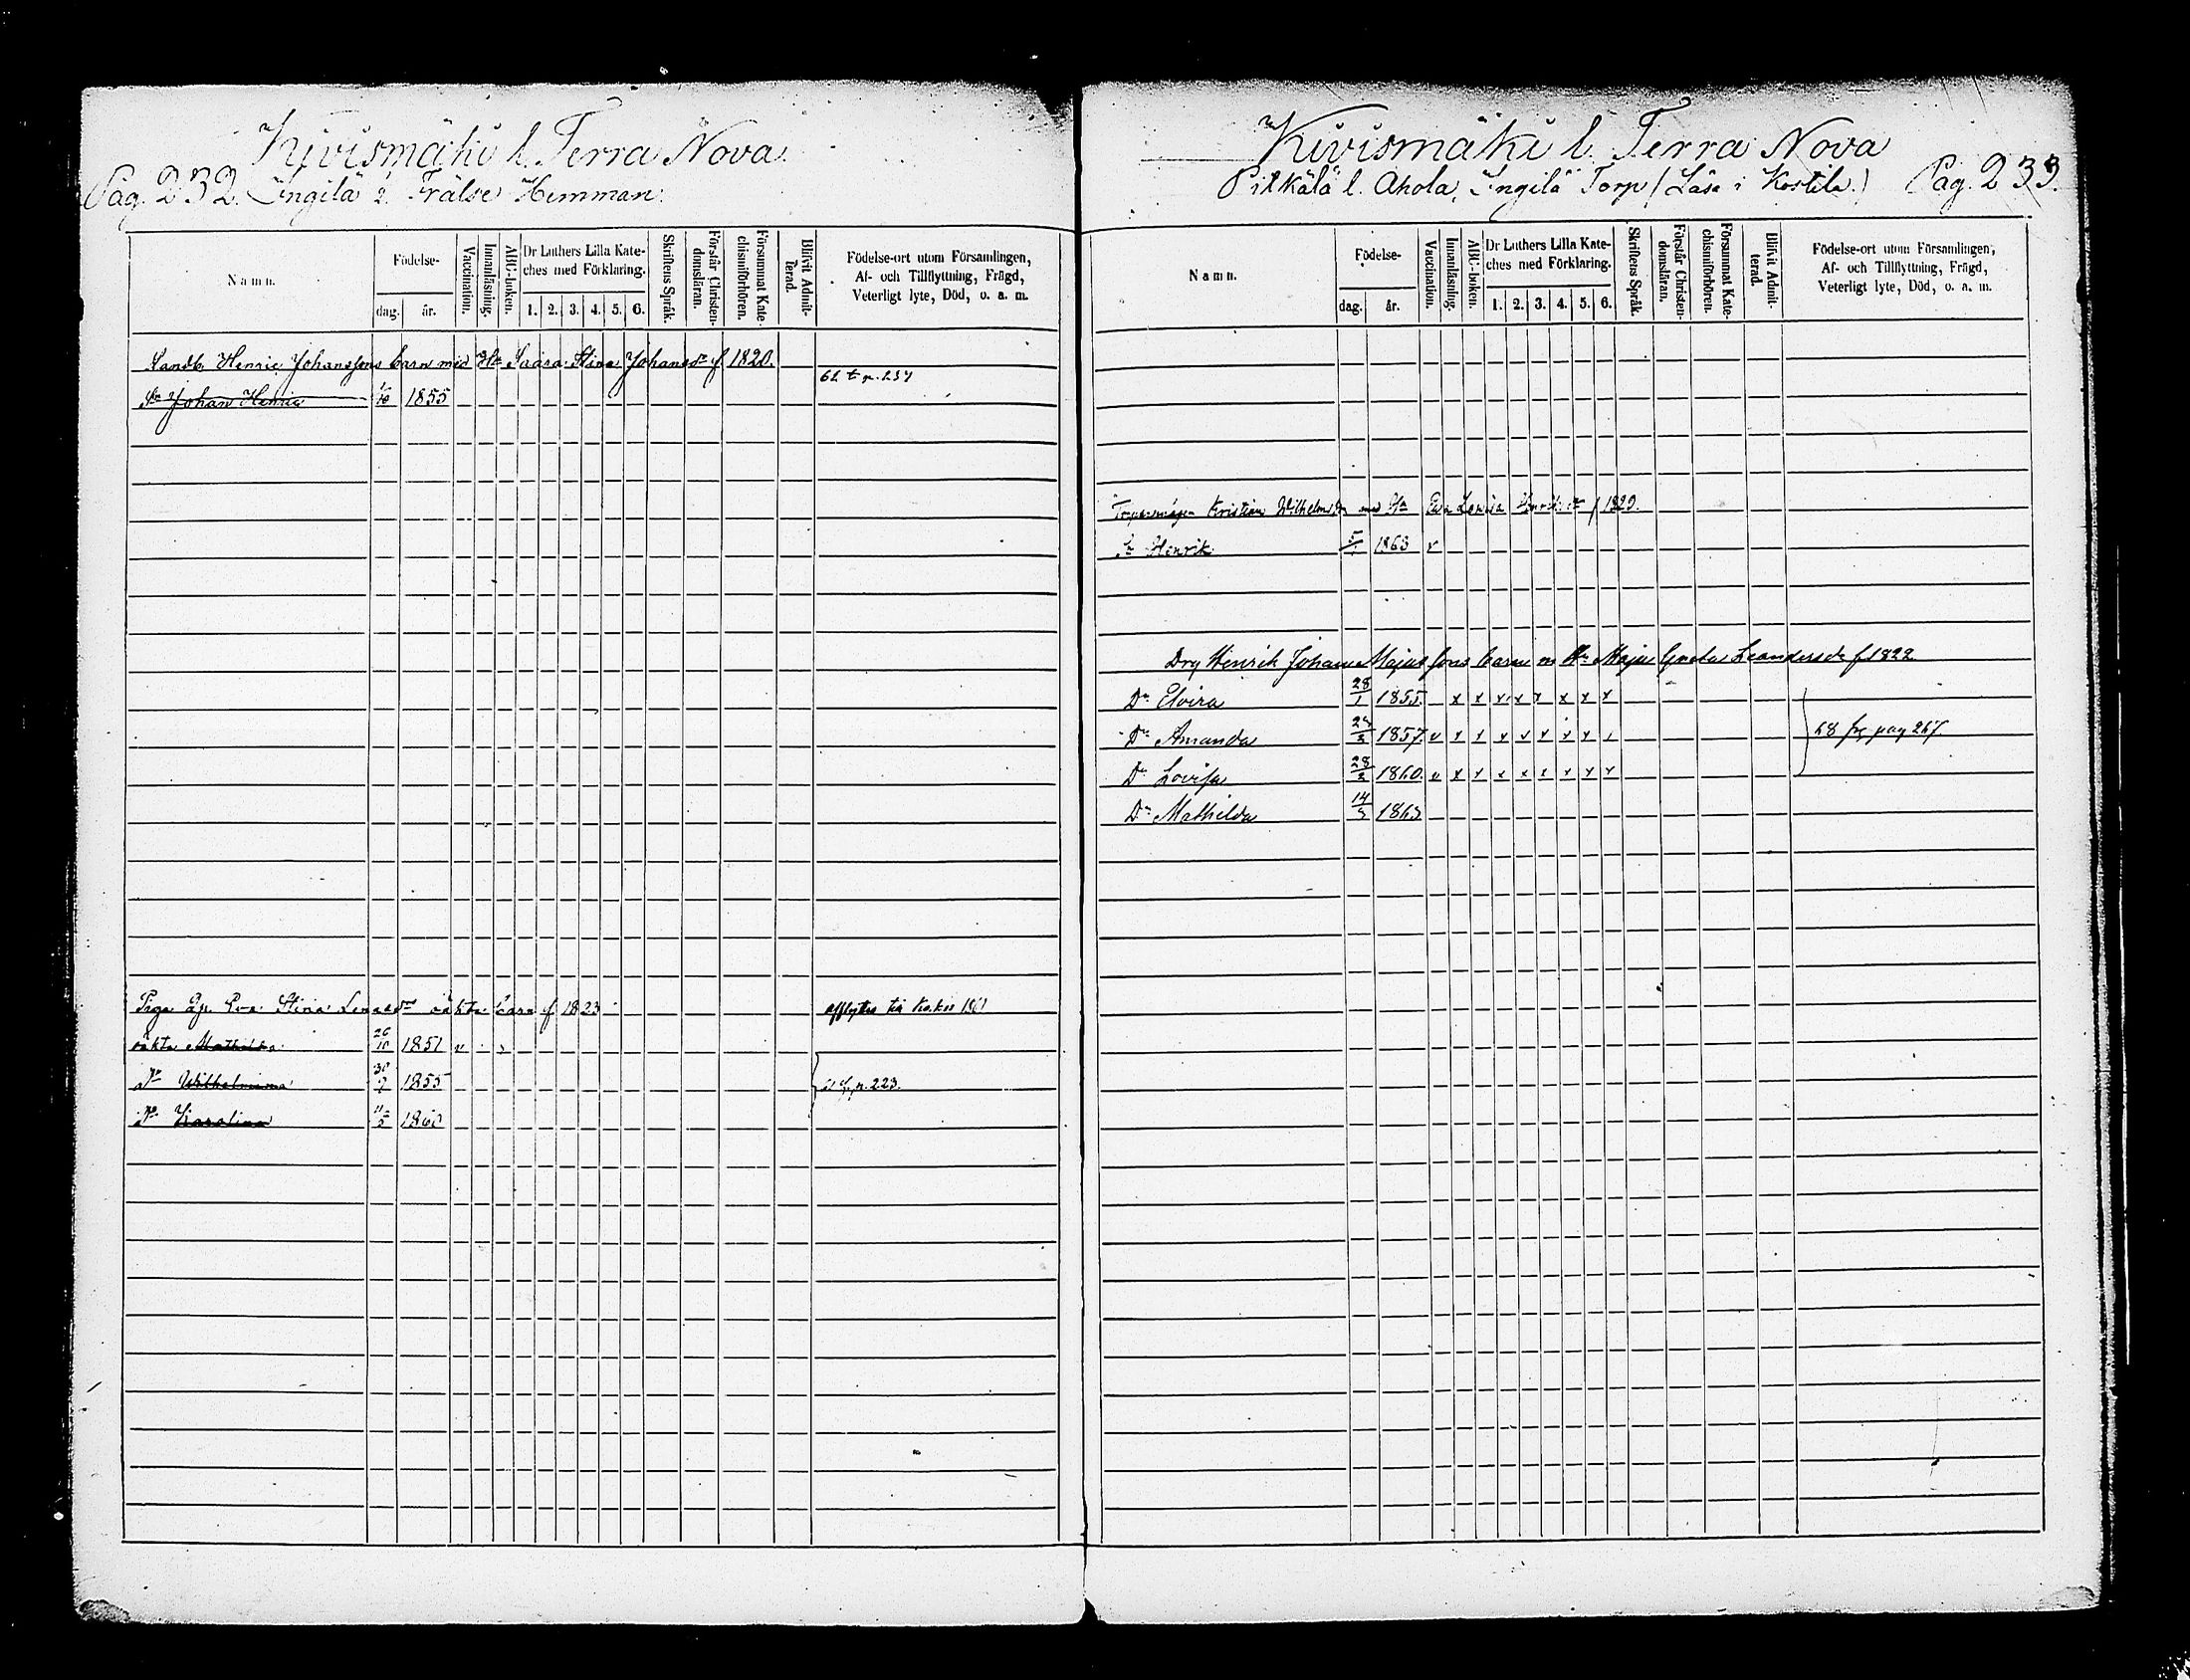 Kivismäki l. Terra Nova.
Pag. 232. Ingilä 2. Frälse Hemman.
Namn.
Födelse-
dag.
år.
Vaccination.
Innanläsning.
ABC-boken.
Dr Luthers Lilla Kate-
ches med Förklaring.
1. 2. 3. 4. 5. 6.
Skriftens Språk.
Förstår Christen-
domsläran.
Försummat Kate-
chismiförhören.
Blifvit Admit-
terad.
Födelse-ort utom Församlingen,
Af- och Tillflyttning, Frägd,
Veterligt lyte, Död, o. a. m.
Landb. Henric Johanssons barn med Hu Saara Stina Johansdr f 1820.
Sn Johan Henric 1855
Eva Stina barn f 1823 afflyttar 1861
oäkta Mathilda 26/10 1851 v
Dr Wilhelmina 1855 p. 223.
Dr Karolina 1860
Kivismäki l. Terra Nova
Pitkälä l. Ahola, Ingilä Torp (Läse i Kostila.) Pag. 233.
Namn.
Födelse-
dag.
år.
Vaccination.
Innanläsning.
ABC-boken.
Dr Luthers Lilla Kate-
ches med Förklaring.
1. 2. 3. 4. 5. 6.
Skriftens Språk.
Förstår Christen-
domsläran.
Försummat Kate-
chismiförhören.
Blifvit Admit-
terad.
Födelse-ort utom Församlingen,
Af- och Tillflyttning, Frägd,
Veterligt lyte, Död, o. a. m.
Kristian Wilhelmsson med Hu Eva Lovisa f 1820.
Sn Henrik 1863 v
Drg Henrik Johan barn m Hu Maja Greta Leandersdr f 1822
Dr Elvira 28/1 1855 x x x x x x x x
Dr Amanda 1857 v x x x x x x x x
68 pag 267
Dr Lovisa 28/3 1860 v x x x x x x x x
Dr Mathilda 14/3 1863